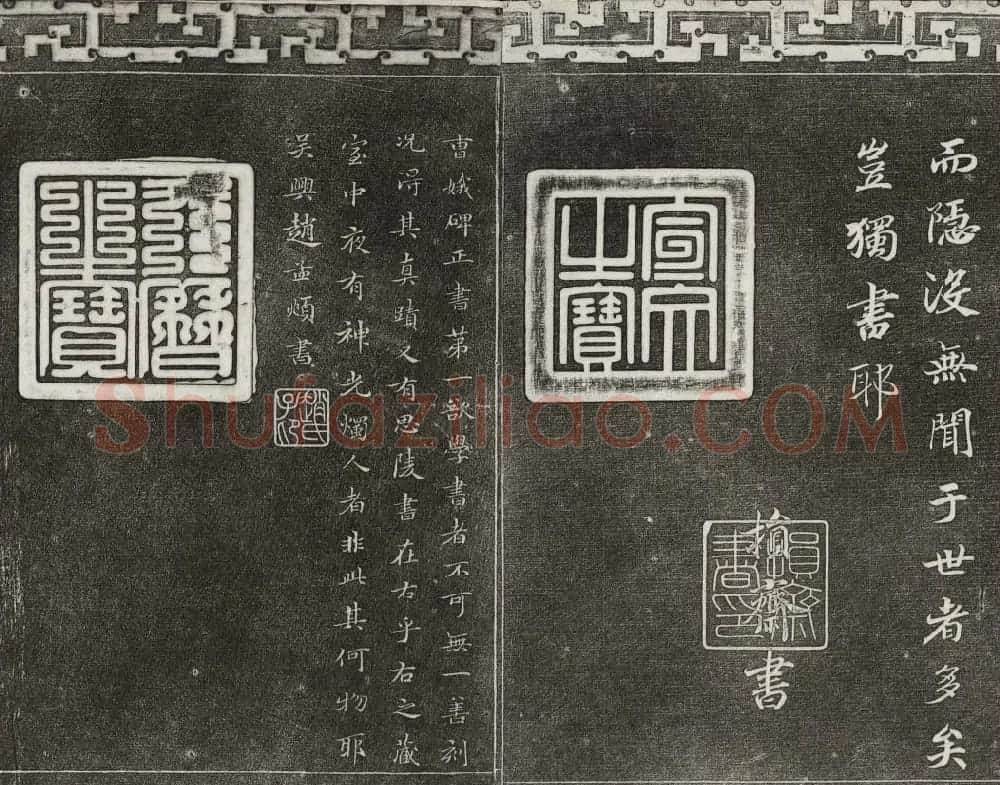 而隠没無聞于世者多矣
豈獨書耶
損齋書
宣文之寶
曹娥碑正書第一欲學書者不可無一善刻
况得其真蹟又有思陵書在右乎右之藏
室中夜有神光燭人者非此其何物耶
吴興趙孟頫書
趙氏子昂
天曆之寶
Shufaziliao.COM